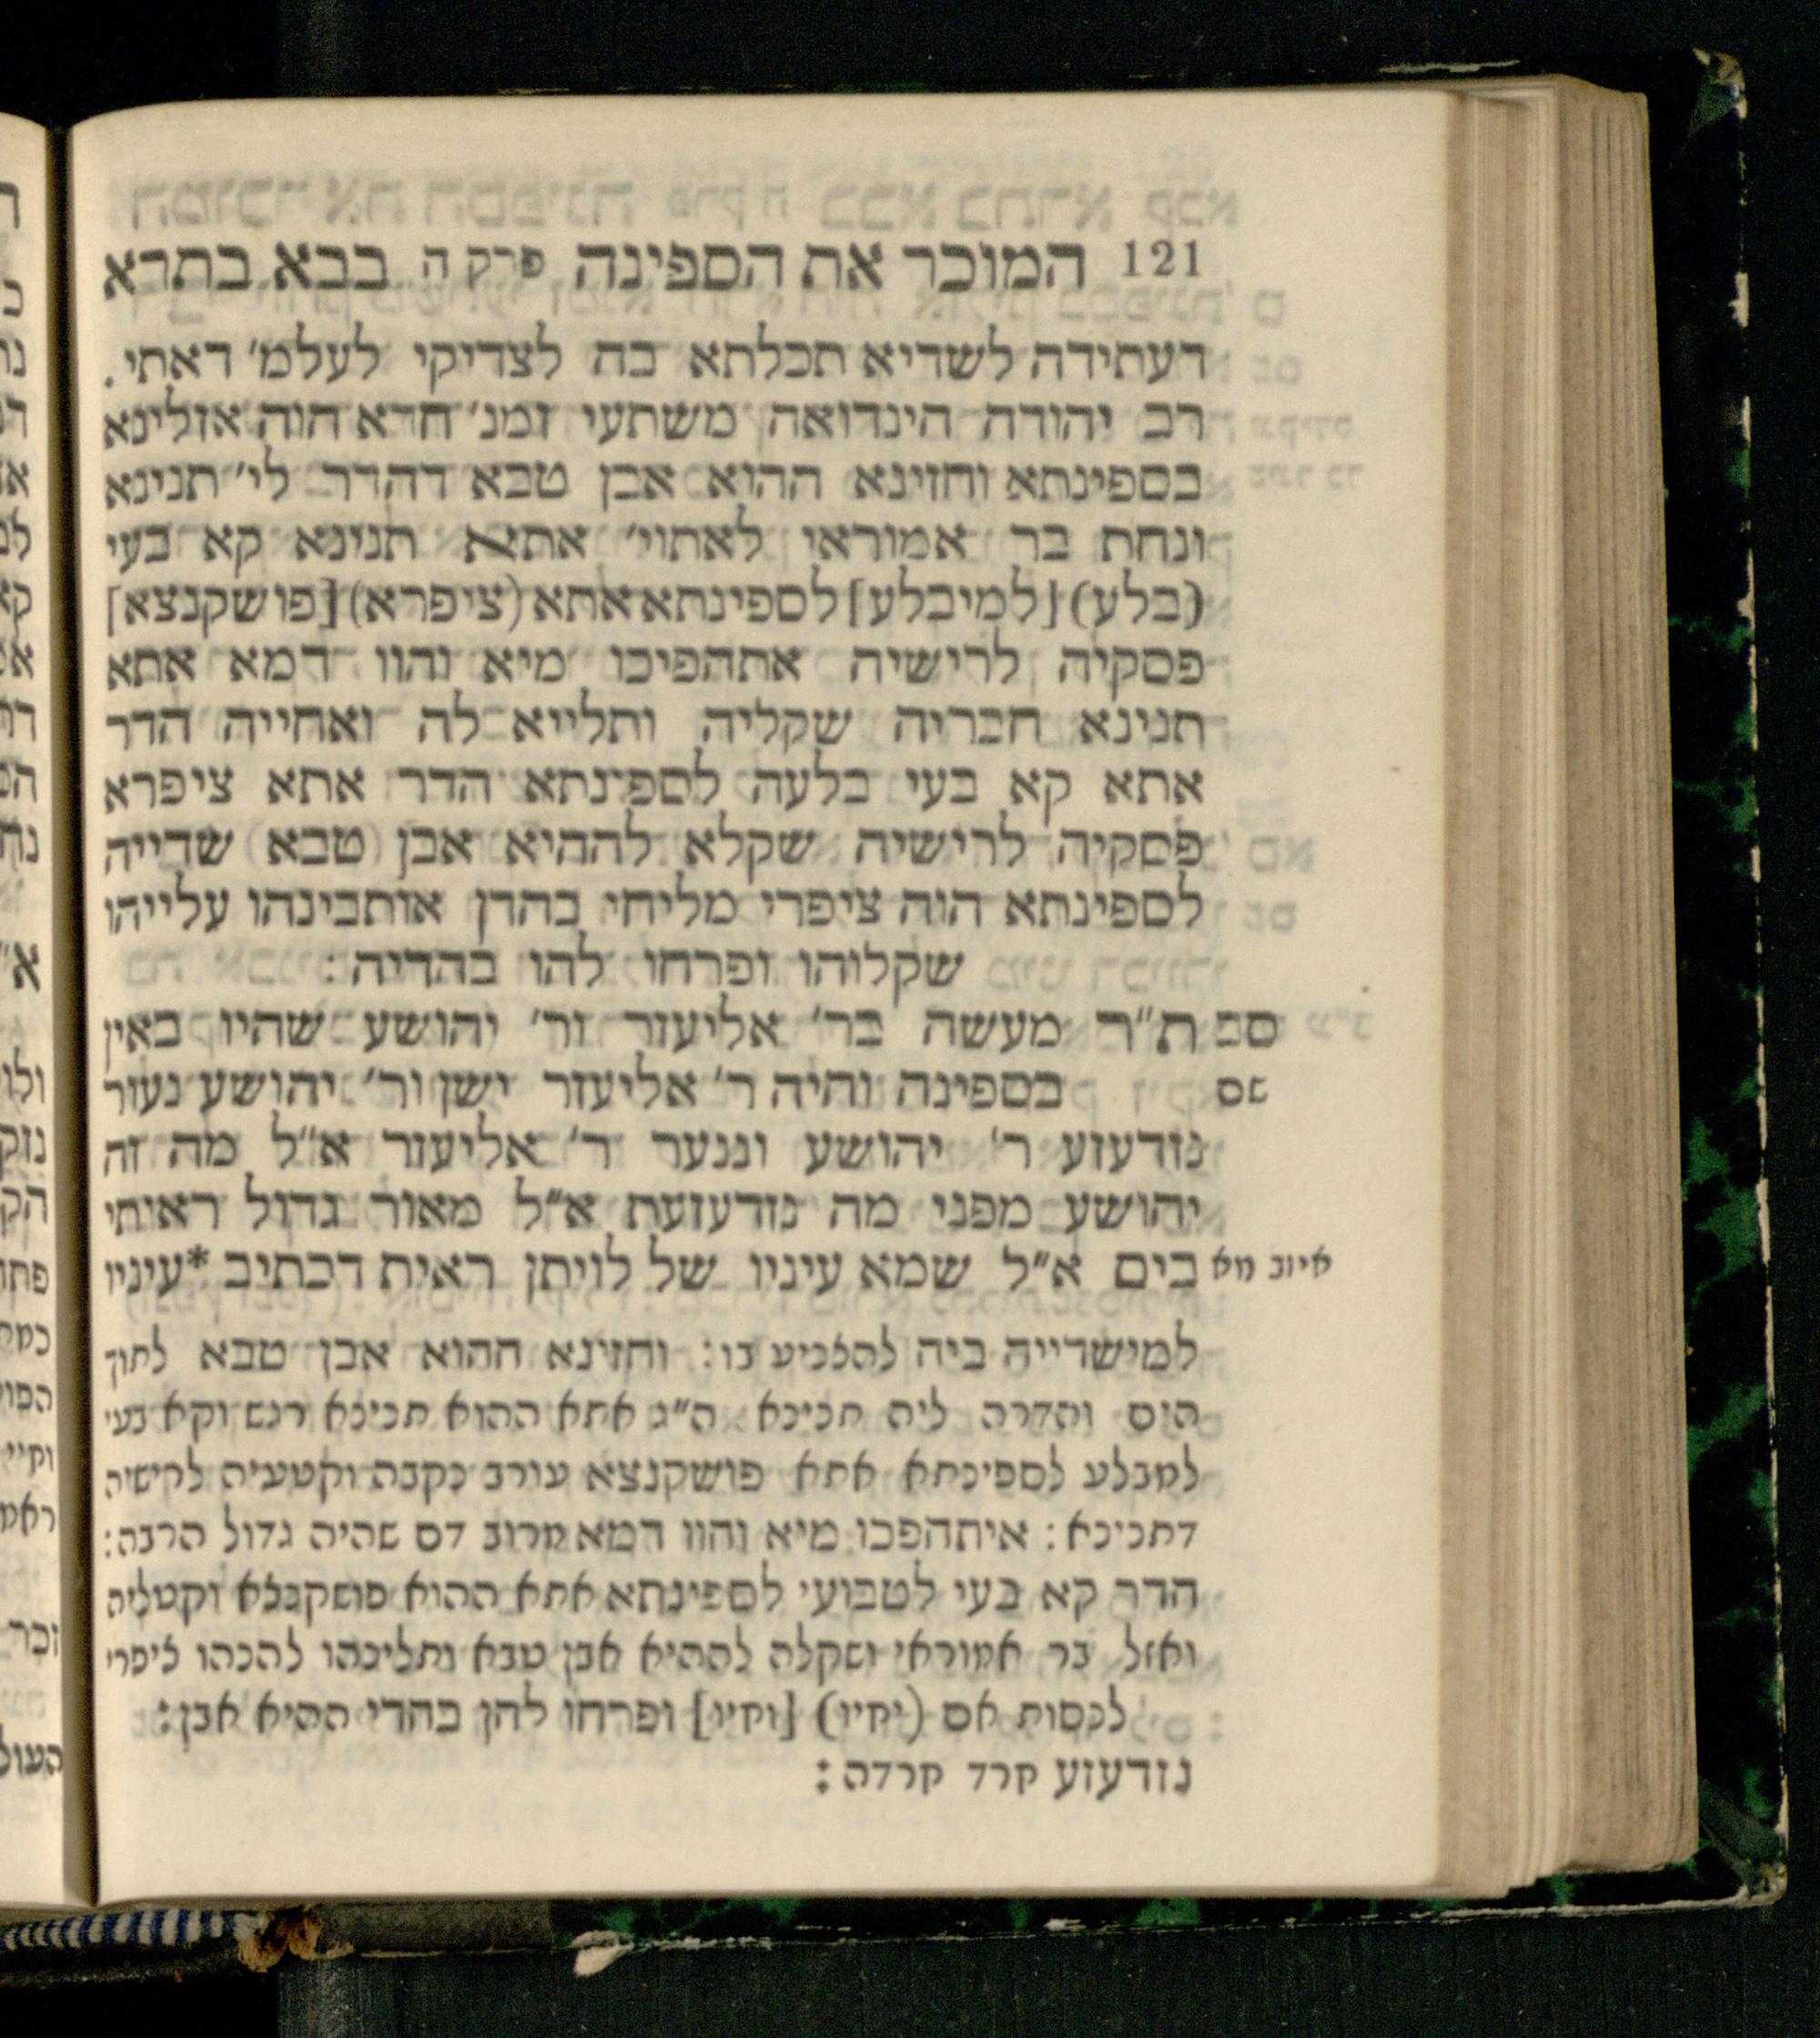 121 המוכר את הספינה פרק ה בבא בתרא
דעתידה לשדיא תכלתא בה לצדיקי לעלמ׳ דאתי.
רב יהודה הינדואה משתעי זמנ׳ חדא הוה אזלינא
בספינתא וחזינא ההוא אבן טבא דהדר לי׳ תנינא
ונחת בר אמוראי לאתוי׳ אתא תנינא קא בעי
(בלע) [למיבלע] לספינתא אתא (ציפרא) [פושקנצא]
פסקיה לרישיה אתהפיכו מיא והוו דמא אתא
תנינא חבריה שקליה ותלייא לה ואחייה הדר
אתא קא בעי בלעה לספינתא הדר אתא ציפרא
פסקיה לרישיה שקלא לההיא אבן טבא שדייה
לספינתא הוה ציפרי מליחי בהדן אותבינהו עלייהו
שקלוהו ופרחו להו בהדיה:
סב ת״ר מעשה בר׳ אליעזר ור׳ יהושע שהיו באין
שם בספינה והיה ר׳ אליעזר ישן ור׳ יהושע נעור
נזדעזע ר׳ יהושע וננער ר׳ אליעזר א״ל מה זה
יהושע מפני מה נזדעזעת א״ל מאור גדול ראיתי
איוב מא בים א״ל שמא עיניו של לויתן ראית דכתיב *עיניו
למישדייה ביה להטביע בו: וחזינא ההוא אבן טבא לתוך
הים והדרה ליה תנינא ה״ג אתא ההוא תנינא רגש וקא בעי
למבלע לספינתא אתא פושקנצא עורב נקבה וקטעיה לרישיה
דתנינא: איתהפכו מיא והוו דמא מרוב דם שהיה גדול הרבה:
הדר קא בעי לטבועי לספינתא אתא ההוא פושקנצא וקטליה
ואזל בר אמוראי ושקלה לההיא אבן טבא ותלינהו להנהו ציפרי
לנסות אם (יחיו) [וחיו] ופרחו להן בהדי ההיא אבן:
נזדעזע חרד חרדה: